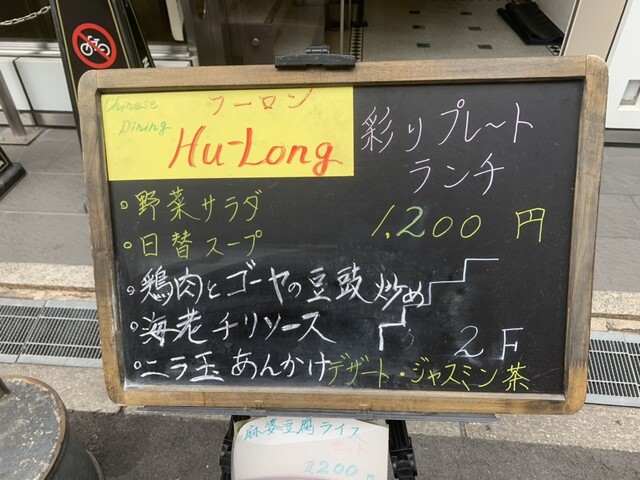 Chinese
Dining
フーロン
Hu-Long
彩りプレート
ランチ
1,200円
・野菜サラダ
・日替スープ
・鶏肉とゴーヤの豆豉炒め
・海老チリソース
・ニラ玉あんかけ
デザート・ジャスミン茶
2F
麻婆豆腐ライス
セット
1,200円